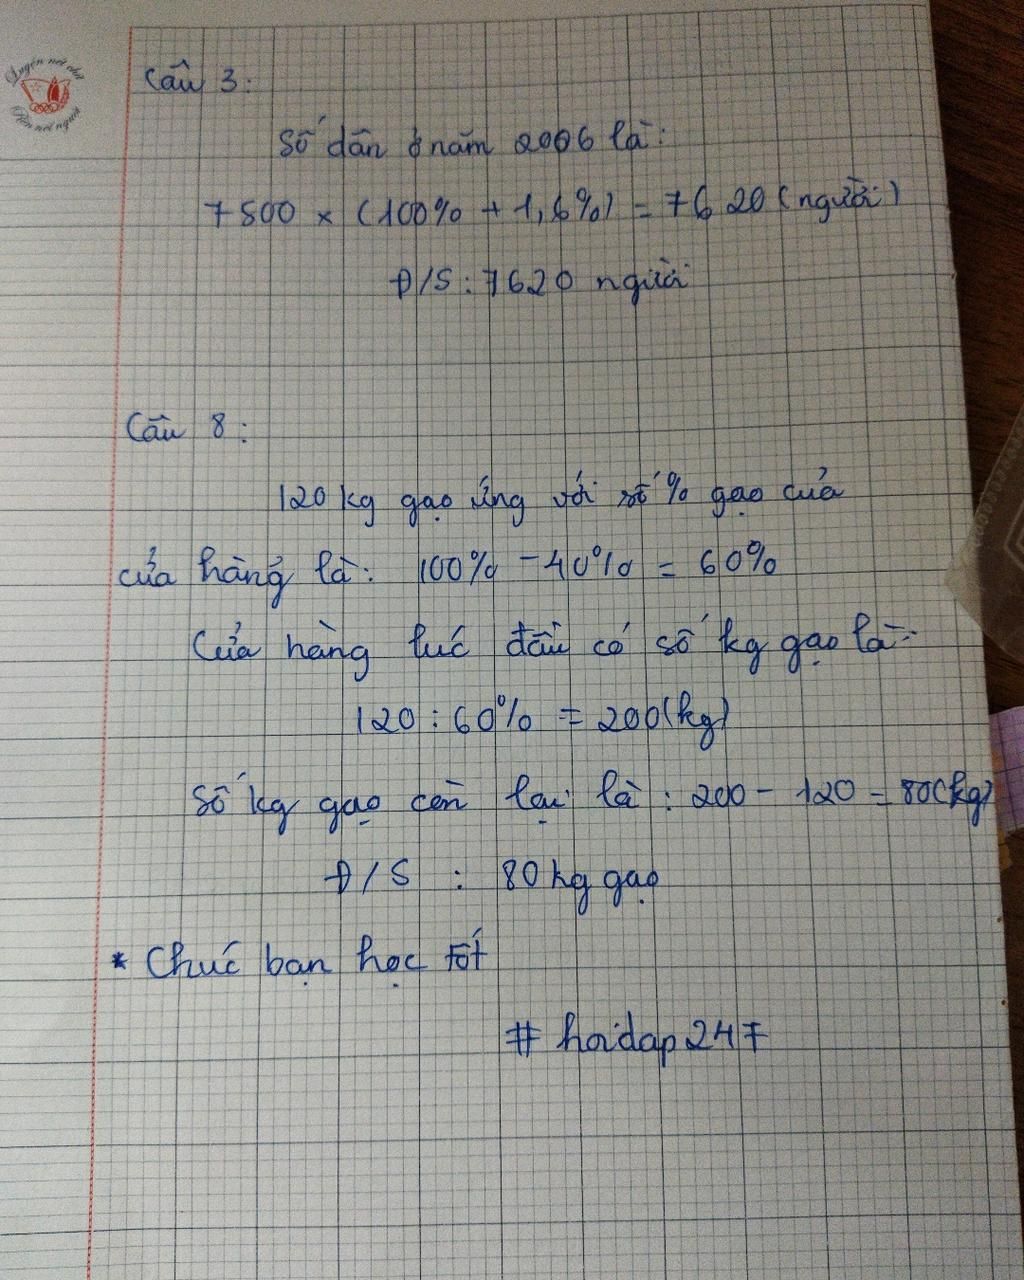 Luyện nét chữ
Rèn nết người
Câu 3:
Số dân ở năm 2006 là:
7500 × (100% + 1,6%) = 7620 (người)
Đ/S: 7620 người
Câu 8:
120 kg gạo ứng với số % gạo của
cửa hàng là: 100% - 40% = 60%
Cửa hàng lúc đầu có số kg gạo là:
120 : 60% = 200(kg)
Số kg gạo còn lại là : 200 - 120 = 80(kg)
Đ/S : 80 kg gạo
* Chúc bạn học tốt
# hoidap247